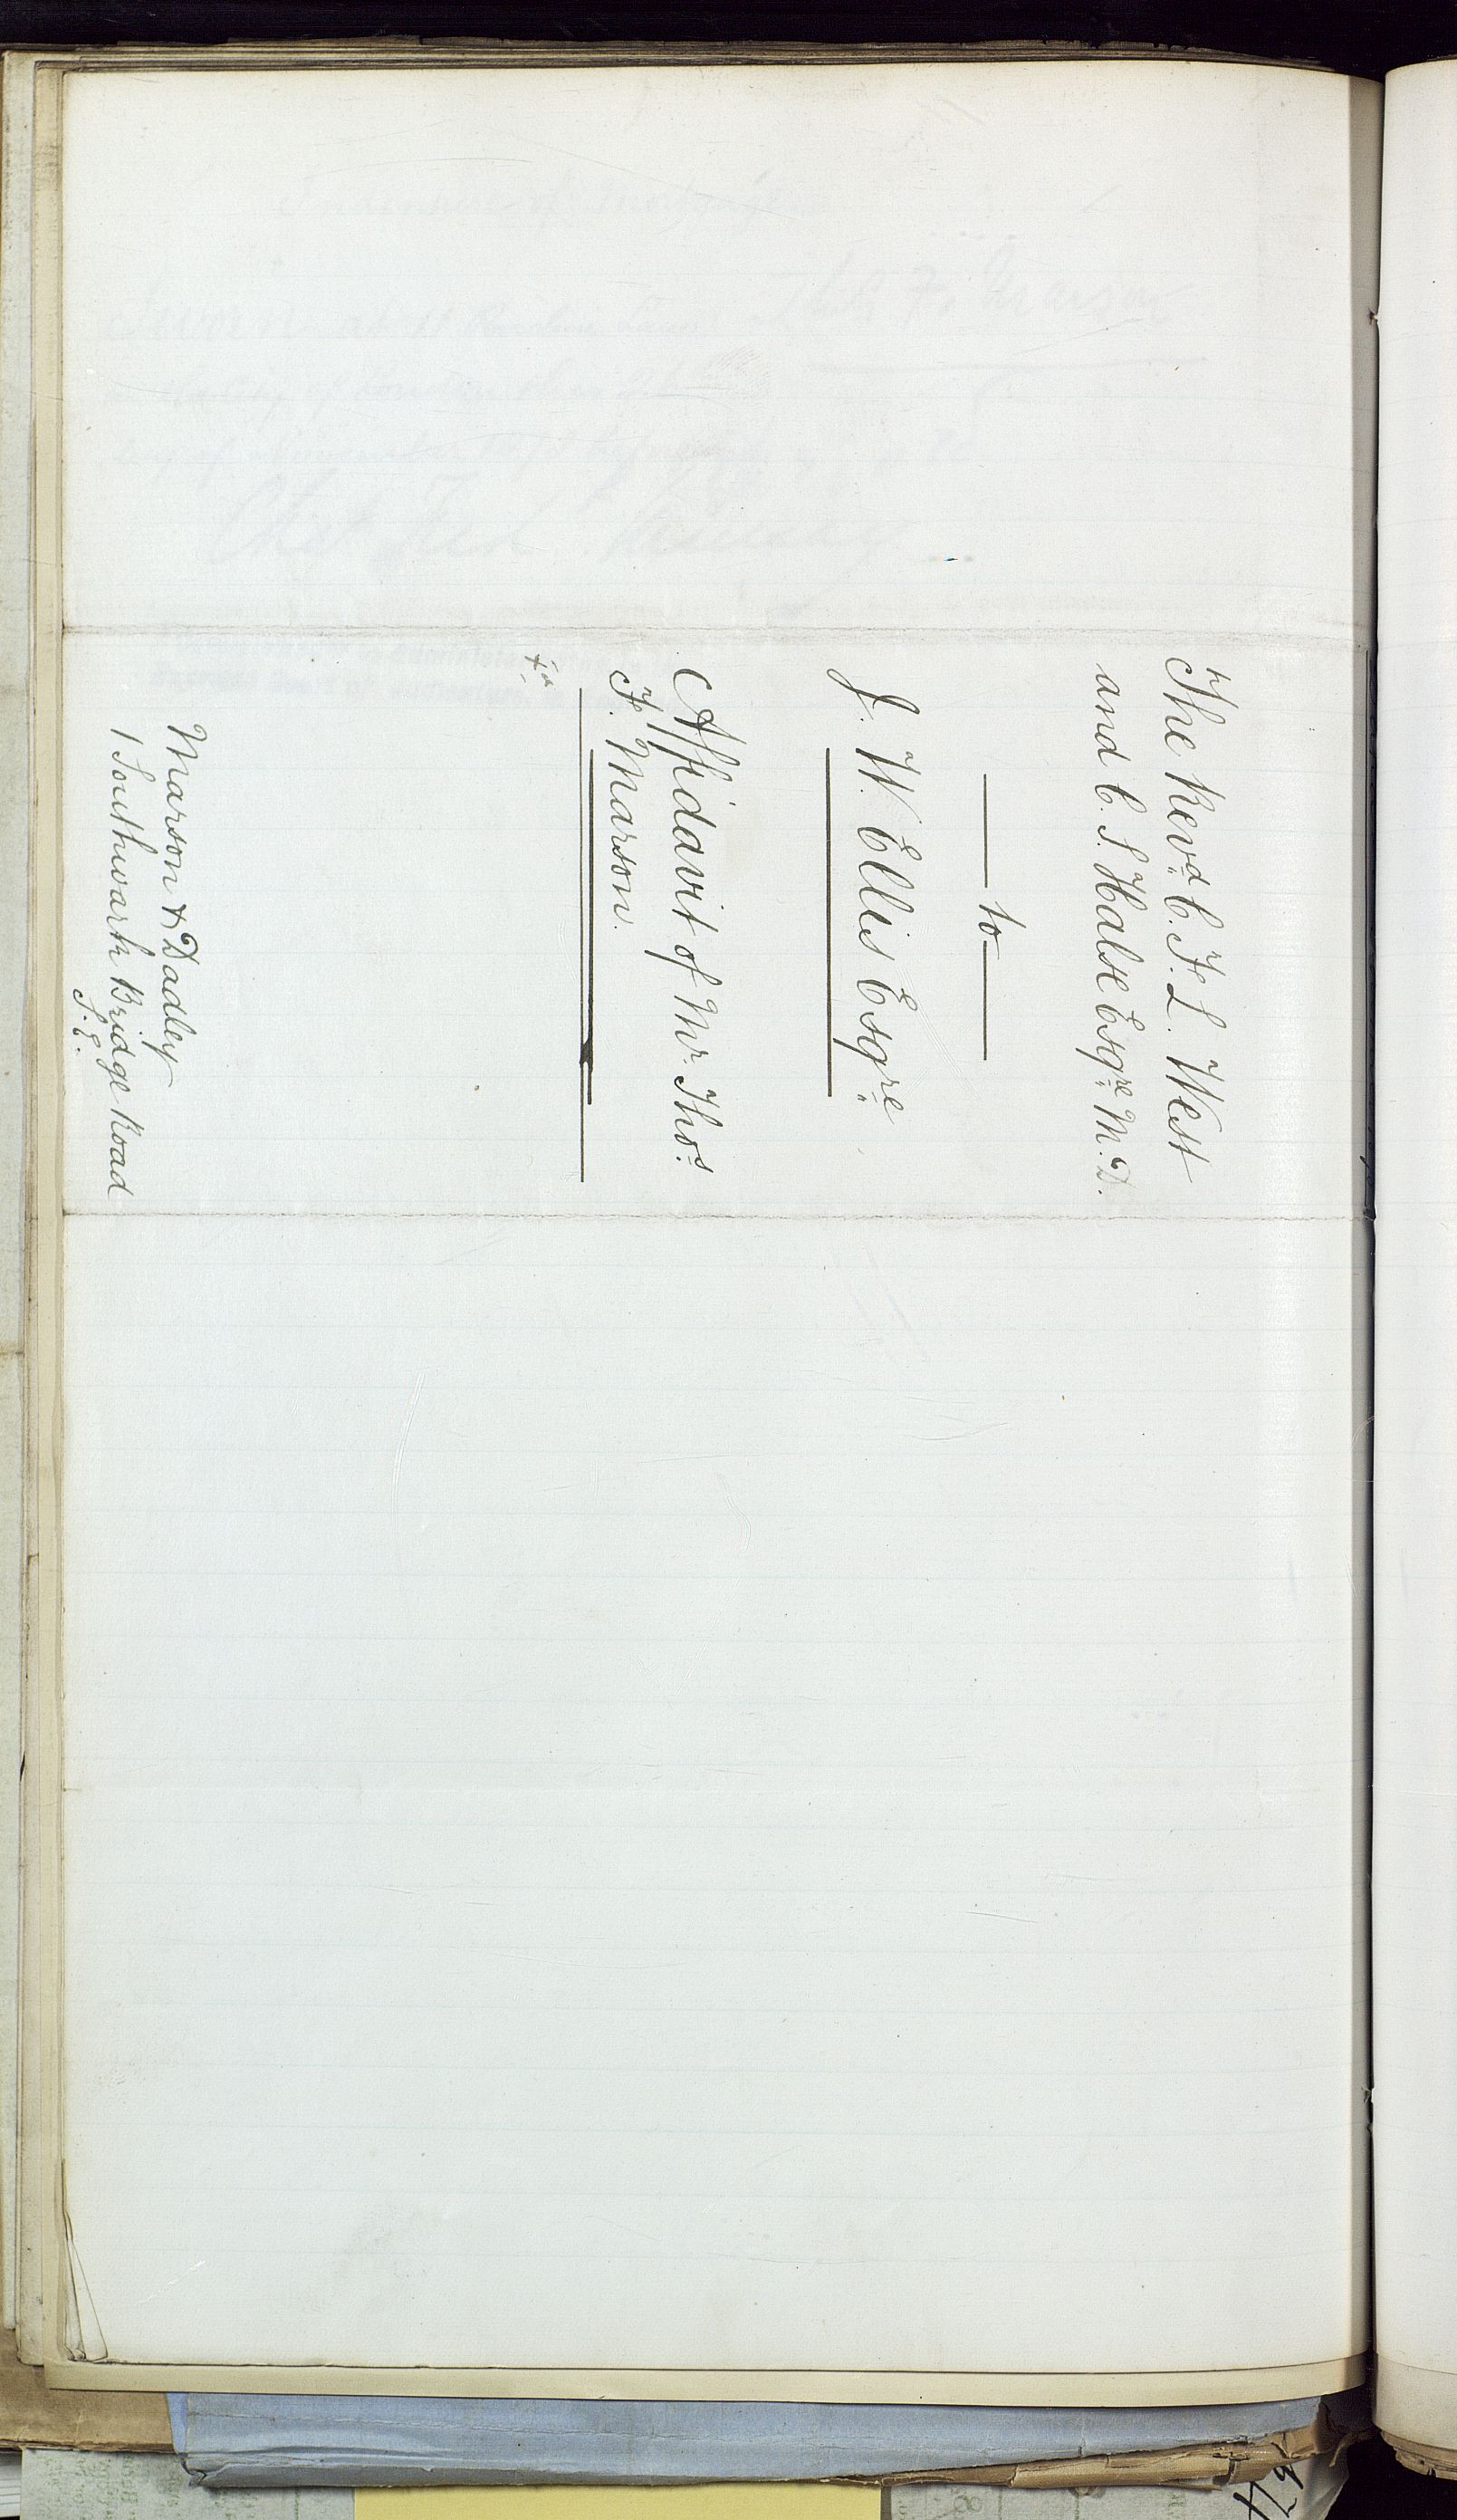 The Revd. C. F. L. West
and C. S. Halse Esqre. M.D.
to
J. W. Ellis Esqre.
Affidavit of Mr. Thos.
F. Marson.
Marson & Dadley
1 Southwark Bridge Road
S.E.